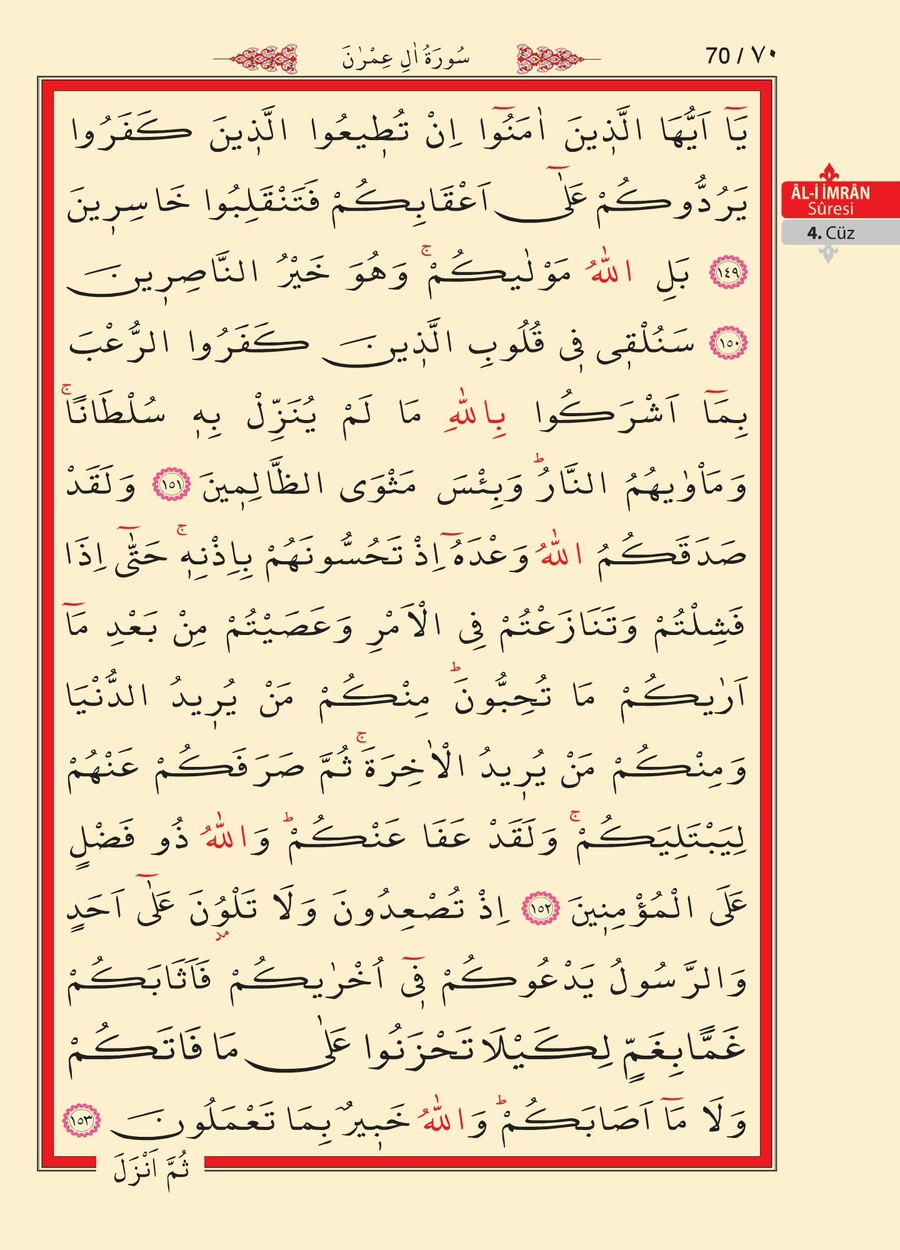 سُورَةُ اٰلِ عِمْرٰنَ
70 / ٧٠
يَٓا اَيُّهَا الَّذ۪ينَ اٰمَنُٓوا اِنْ تُط۪يعُوا الَّذ۪ينَ كَفَرُوا
يَرُدُّوكُمْ عَلٰٓى اَعْقَابِكُمْ فَتَنْقَلِبُوا خَاسِر۪ينَ
﴿١٤٩﴾ بَلِ اللّٰهُ مَوْلٰيكُمْۚ وَهُوَ خَيْرُ النَّاصِر۪ينَ
﴿١٥٠﴾ سَنُلْق۪ى ف۪ى قُلُوبِ الَّذ۪ينَ كَفَرُوا الرُّعْبَ
بِمَٓا اَشْرَكُوا بِاللّٰهِ مَا لَمْ يُنَزِّلْ بِه۪ سُلْطَانًاۚ
وَمَاْوٰيهُمُ النَّارُۜ وَبِئْسَ مَثْوَى الظَّالِم۪ينَ ﴿١٥١﴾ وَلَقَدْ
صَدَقَكُمُ اللّٰهُ وَعْدَهُٓ اِذْ تَحُسُّونَهُمْ بِاِذْنِه۪ۚ حَتّٰٓى اِذَا
فَشِلْتُمْ وَتَنَازَعْتُمْ فِى الْاَمْرِ وَعَصَيْتُمْ مِنْ بَعْدِ مَٓا
اَرٰيكُمْ مَا تُحِبُّونَۜ مِنْكُمْ مَنْ يُر۪يدُ الدُّنْيَا
وَمِنْكُمْ مَنْ يُر۪يدُ الْاٰخِرَةَۚ ثُمَّ صَرَفَكُمْ عَنْهُمْ
لِيَبْتَلِيَكُمْۚ وَلَقَدْ عَفَا عَنْكُمْۜ وَاللّٰهُ ذُو فَضْلٍ
عَلَى الْمُؤْمِن۪ينَ ﴿١٥٢﴾ اِذْ تُصْعِدُونَ وَلَا تَلْوُ۫نَ عَلٰٓى اَحَدٍ
مد
وَالرَّسُولُ يَدْعُوكُمْ ف۪ٓى اُخْرٰيكُمْ فَاَثَابَكُمْ
غَمًّا بِغَمٍّ لِكَيْلَا تَحْزَنُوا عَلٰى مَا فَاتَكُمْ
وَلَا مَٓا اَصَابَكُمْۜ وَاللّٰهُ خَب۪يرٌ بِمَا تَعْمَلُونَ ﴿١٥٣﴾
ثُمَّ اَنْزَلَ
ÂL-İ İMRÂN
Sûresi
4. Cüz